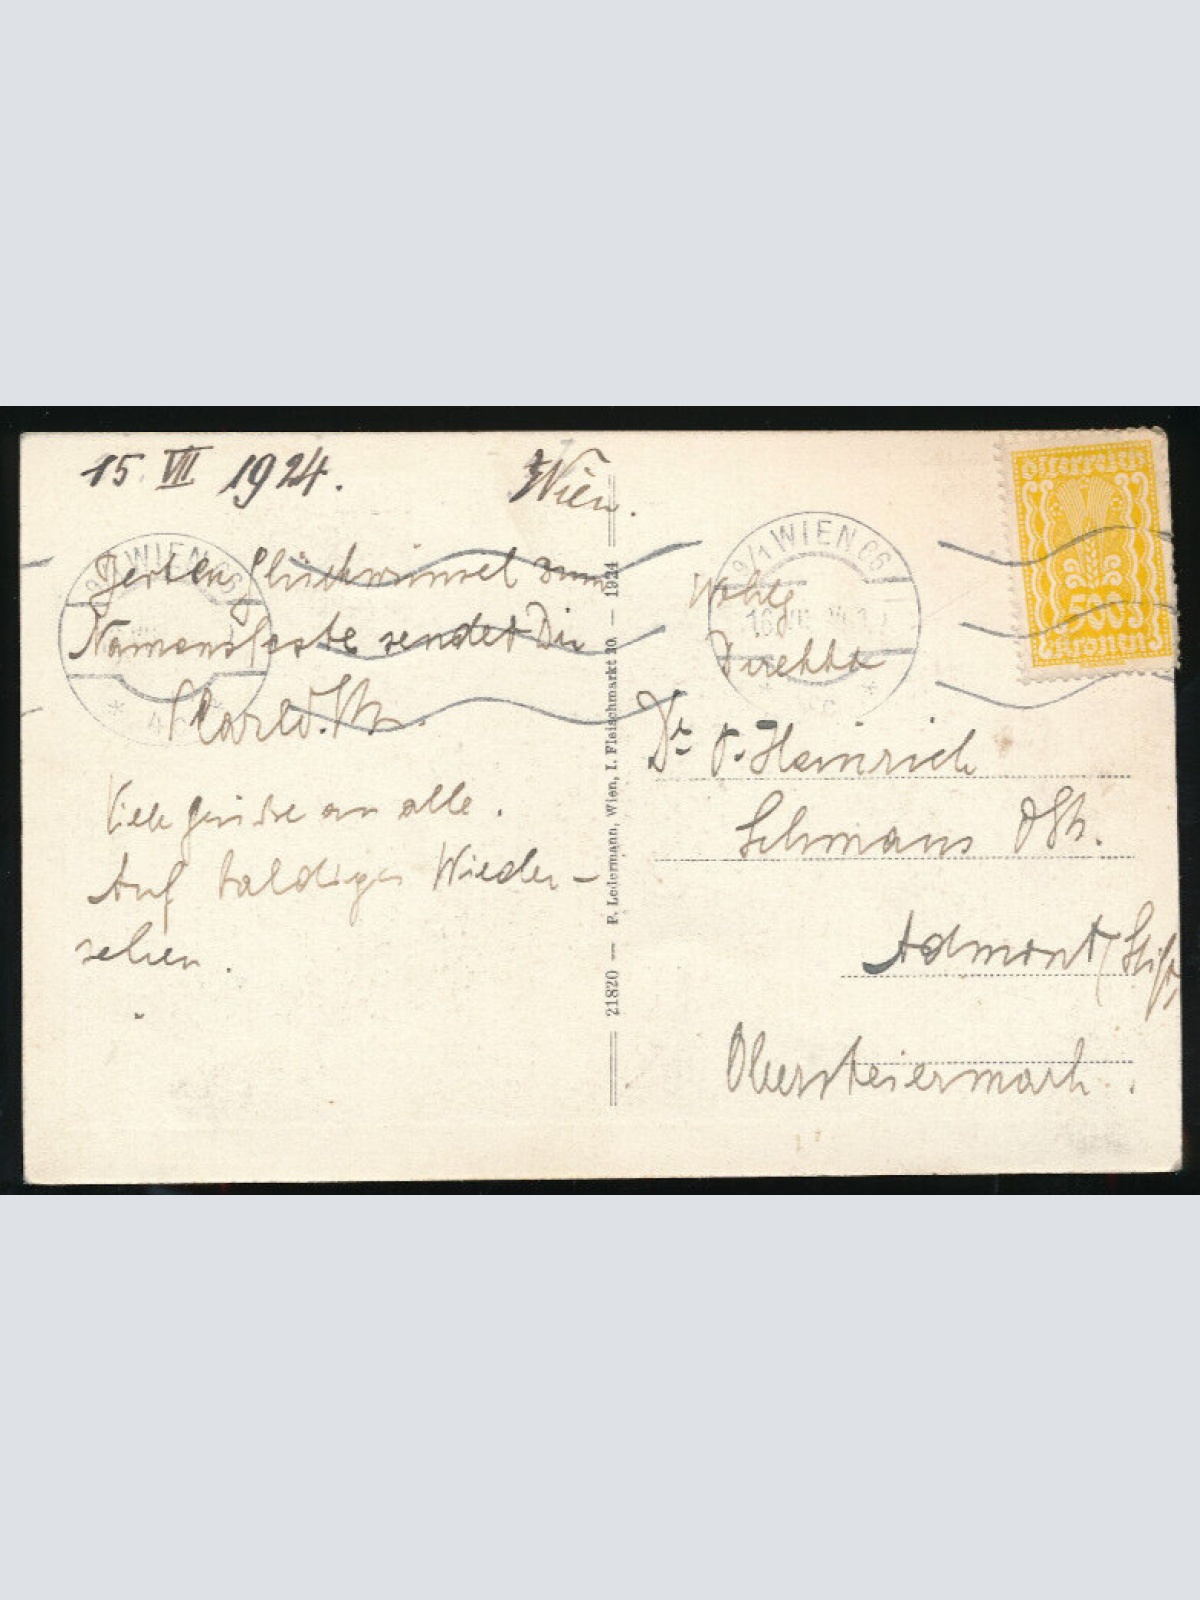 15. VII 1924. Wien.
Glückwünsche zum
Namensfeste sendet Dir
Viele Grüsse an alle.
Auf baldiges Wieder-
sehen.
P. Ledermann, Wien, I. Fleischmarkt 20. — 1924
21820 —
WIEN 66
9/1 WIEN 66
Österreich
500
Kronen
Dr. P. Heinrich
Schmaus OSB.
Admont, Stift,
Obersteiermark.